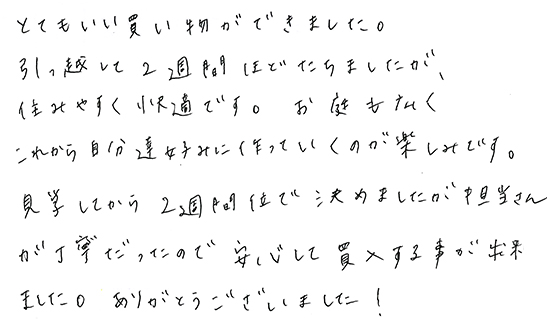 とてもいい買い物ができました。
引っ越して2週間ほどたちましたが、
住みやすく快適です。お庭も広く
これから自分達好みに作っていくのが楽しみです。
見学してから2週間位で決めましたが担当さん
が丁寧だったので安心して買入する事が出来
ました。ありがとうございました!